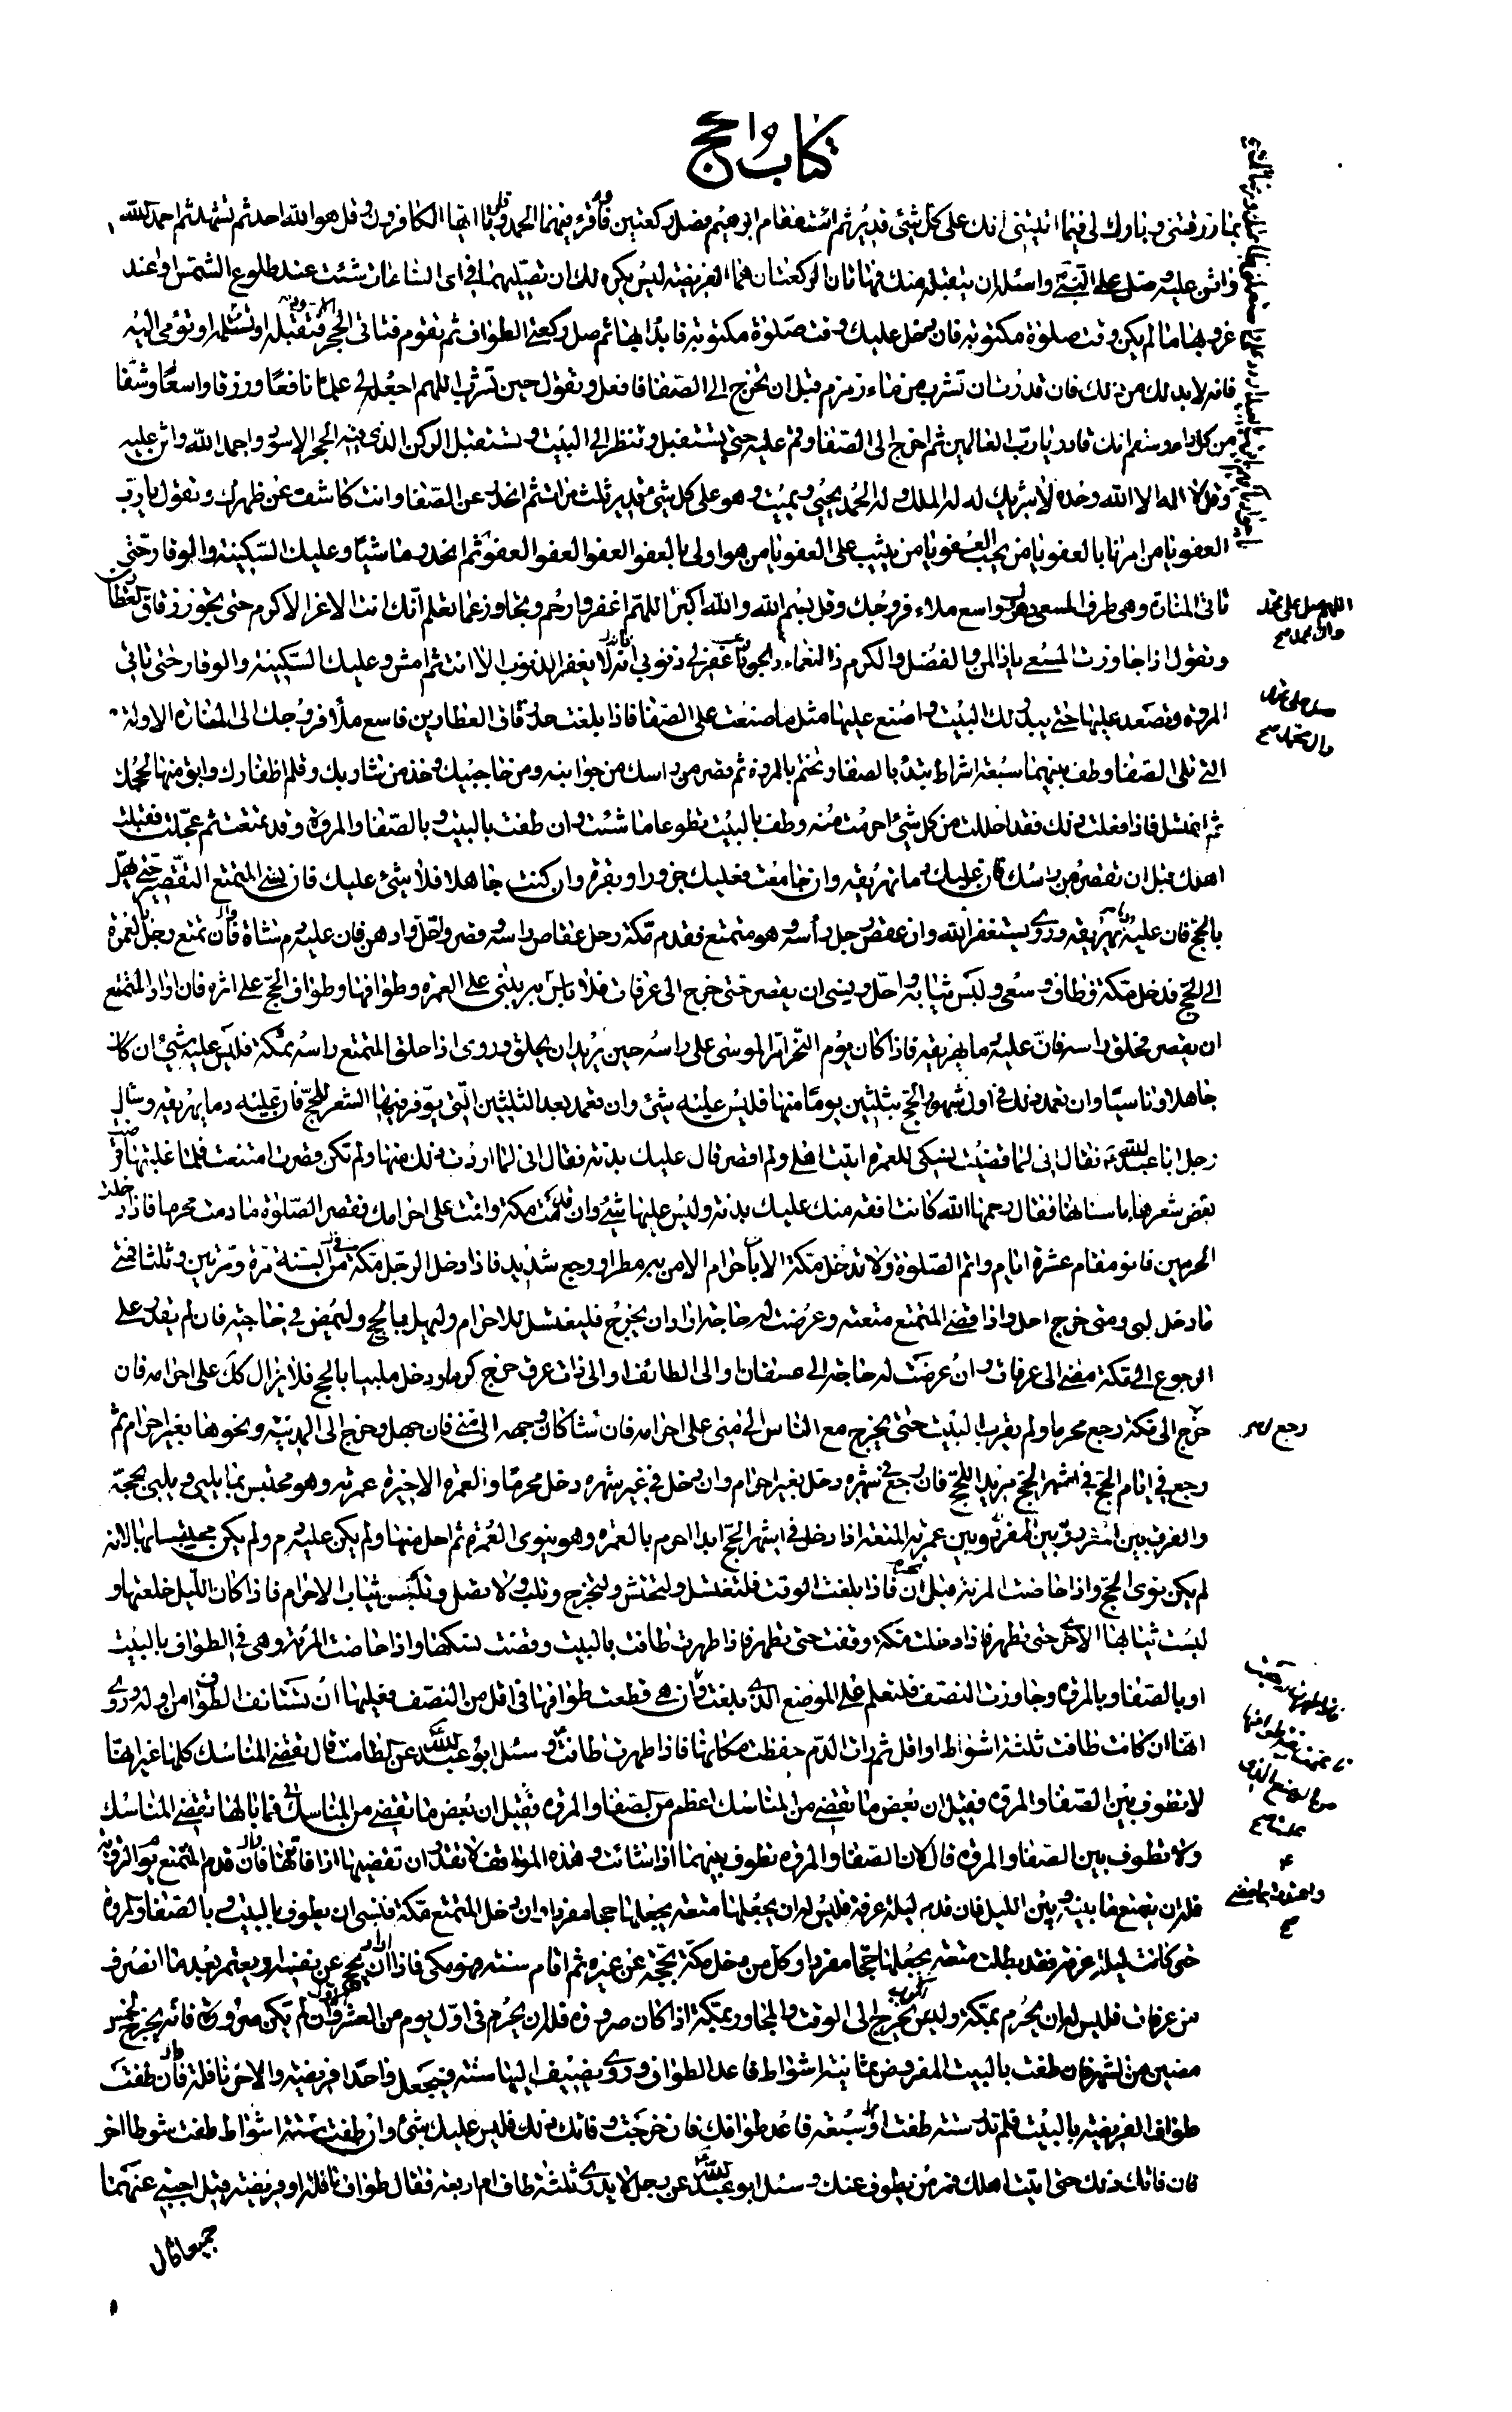 كتاب الحج
بما رزقتني وبارك لي فيما اتيتني انك على كل شئ قدير ثم ائت مقام ابرهيم فصل ركعتين فاقرء فيهما الحمد وقل يا ايها الكافرون وقل هو الله احد ثم تشهد ثم احمد الله
واثن عليه وصل على النبي واسئله ان يتقبله منك فهاتان الركعتان هما الفريضة ليس يكره لك ان تصليهما في اى الساعات شئت عند طلوع الشمس وعند
غروبها ما لم يكن وقت صلوة مكتوبة فان دخل عليك وقت صلوة مكتوبة فابدأ بها ثم صل ركعتي الطواف ثم تقوم فتأتى الحجر الاسود فتقبله او تستلمه او تؤمى اليه
فانه لا بد لك من ذلك فان قدرت ان تشرب من ماء زمزم قبل ان تخرج الى الصفا فافعل وتقول حين تشرب اللهم اجعله لى علما نافعا ورزقا واسعا وشفا
من كل داء وسقم انك قادر يا رب العالمين ثم اخرج الى الصفا وقم عليه حتى تستقبل وتنظر الى البيت وتستقبل الركن الذى فيه الحجر الاسود واحمد الله واثن عليه
وقل لا اله الا الله وحده لا شريك له له الملك وله الحمد يحيي ويميت وهو على كل شئ قدير ثلث مرات ثم انحدر عن الصفا وانت كاشف عن ظهرك وتقول يا رب
العفو يا من امرنا بالعفو يا من يحب العفو يا من يثيب على العفو يا من هو اولى بالعفو العفو العفو العفو ثم انحدر ماشيا وعليك السكينة والوقار حتى
تاتى المنارة وهى طرف المسعى فاسع ملاء فروجك وقل بسم الله والله اكبر اللهم اغفر وارحم وتجاوز عما تعلم انك انت الاعز الاكرم حتى تجوز زقاق العطارين
اللهم صل على محمد وآل محمد صح
وتقول اذا جاوزت المسعى ياذا المن والفضل والكرم ذا النعماء والجود اغفر لى ذنوبى انه لا يغفر الذنوب الا انت ثم امش وعليك السكينة والوقار حتى تاتى
المروة وتصعد عليها حتى يبدو لك البيت واصنع عليها مثل ما صنعت على الصفا فاذا بلغت حد زقاق العطارين فاسع ملأ فروجك الى المنارة الاولة
صل على محمد وال محمد صح
التى تلى الصفا وطف بينهما سبعة اشواط تبتدء بالصفا وتختم بالمروة ثم قصر من راسك من جوانبه ومن حاجبيك وخذ من شاربك وقلم اظفارك وابق منها لحجك
ثم اغتسل فاذا فعلت ذلك فقد احللت من كل شئ احرمت منه وطف بالبيت تطوعا ما شئت وان طفت بالبيت وبالصفا والمروة وقد تمتعت ثم عجلت فقبلت
اهلك قبل ان تقصر من راسك فان عليك دما تهريقه وان جامعت فعليك جزورا وبقرة وان كنت جاهلا فلا شئ عليك فان نسى المتمتع التقصير حتى يهل
بالحج فان عليه دما يهريقه وروى يستغفر الله وان عقص رجل رأسه وهو متمتع فقدم مكة وحل عقاص راسه وقصر واحل وادهن فان عليه دم شاة وان تمتع رجل بالعمرة
الى الحج فدخل مكة فطاف وسعى ولبس ثيابه واحل ونسى ان يقصر حتى خرج الى عرفات فلا باس به يبنى على العمرة وطوافها وطواف الحج على اثره فان اراد المتمتع
ان يقصر فحلق راسه فان عليه دما يهريقه فاذا كان يوم النحر امر الموسى على راسه حين يريد ان يحلق وروى اذا حلق المتمتع راسه بمكة فليس عليه شئ ان كان
جاهلا او ناسيا وان تعمد ذلك فى اول شهور الحج بثلثين يوما منها فليس عليه شئ وان تعمد بعد الثلثين التى يوفر فيها الشعر للحج فان عليه دما يهريقه وسأل
رجل ابا عبد الله ع فقال انى لما قضيت نسكى للعمرة اتيت اهلى ولم اقصر قال عليك بدنة فقال انى لما اردت ذلك منها ولم تكن قصرت امتنعت فلما غلبتها قرضت
بعض شعرها باسنانها فقال رحمها الله كانت افقه منك عليك بدنة وليس عليها شئ وان قدمت مكة وانت على احرامك فقصر الصلوة ما دمت محرما فاذا دخلت
الحرمين فانو مقام عشرة ايام واتم الصلوة ولا تدخل مكة الا باحرام الا من به مطر او وجع شديد فاذا دخل الرجل مكة فى السنة مرة ومرتين وثلثا فمتى
ما دخل لبى ومتى خرج احل واذا قضى المتمتع متعته وعرضت له حاجة اراد ان يخرج فليغتسل للاحرام وليهل بالحج وليمض فى حاجته فان لم يقدر على
الرجوع الى مكة مضى الى عرفات وان عرضت له حاجة الى عسفان او الى الطائف او الى ذات عرق خرج محرما ودخل ملبيا بالحج فلا يزال كذلك على احرامه فان
خرج الى مكة رجع محرما ولم يقرب البيت حتى يخرج مع الناس الى منى على احرامه فان شا كان وجهه الى منى فان جهل وخرج الى المدينة ونحوها بغير احرام ثم
رجع فى ايام الحج فى اشهر الحج يريد الحج فان رجع فى شهره دخل بغير احرام وان دخل فى غير شهره دخل محرما والعمرة الاخيرة عمرته وهو محتبس بها يلبى ويلبى بحجة
والفرق بين المفردة وبين عمرة المتعة اذا دخل فى اشهر الحج ابدا احرم بالعمرة وهو ينوى العمرة ثم احل منها ولم يكن عليه دم ولم يكن محتبسا بها لانه
لم يكن ينوى الحج واذا حاضت المرئة قبل ان تحرم فاذا بلغت الوقت فلتغتسل ولتحتش ولتخرج وتلب ولا تصل وتلبس ثياب الاحرام فاذا كان الليل خلعتها و
لبست ثيابها الاخرى حتى تطهر فاذا دخلت مكة وقفت حتى تطهر فاذا طهرت طافت بالبيت وقضت نسكها واذا حاضت المرئة وهى فى الطواف بالبيت
او بالصفا وبالمروة وجاوزت النصف فلتعلم على الموضع الذى بلغت وان هى قطعت طوافها فى اقل من النصف فعليها ان تستانف الطواف من اوله وروى
انها ان كانت طافت ثلثة اشواط او اقل ثم رات الدم حفظت مكانها فاذا طهرت طافت وسئل ابو عبد الله عن الطامث قال تقضى المناسك كلها غير انها
لا تطوف بين الصفا والمروة فقيل ان بعض ما تقضى من المناسك اعظم من الصفا والمروة فما بالها تقضى المناسك
ولا تطوف بين الصفا والمروة قال لان الصفا والمروة تطوف بينهما اذا شائت وهذه المواقف لا تقدر ان تقضيها اذا فاتتها فان قدم المتمتع يوم التروية
فله ان يتمتع ما بينه وبين الليل فان قدم ليلة عرفة فليس له ان يجعلها متعة يجعلها حجا مفردا وان دخل المتمتع مكة فنسى ان يطوف بالبيت وبالصفا والمروة
حتى كانت ليلة عرفة فقد بطلت متعته يجعلها حجا مفردا وكل من دخل مكة بحجة عن غيره ثم اقام سنة فهو مكى فاذا اراد ان يحج عن نفسه او يعتمر بعد ما انصرف
من عرفات فليس له ان يحرم بمكة ولكن يخرج الى الوقت والمجاور بمكة اذا كان صرورة فله ان يحرم فى اول يوم من العشر وان لم يكن صرورة فانه يخرج لخمس
مضين من الشهر فان طفت بالبيت المفروض ثمانية اشواط فاعد الطواف وروى يضيف اليها ستة فيجعل واحدا فريضة والاخر نافلة فان طفت
طواف الفريضة بالبيت فلم تدر ستة طفت او سبعة فاعد طوافك فان خرجت وفاتك ذلك فليس عليك شئ وان طفت ستة اشواط طفت شوطا اخر
فان فاتك ذلك حتى اتيت اهلك فمر من يطوف عنك وسئل ابو عبد الله عن رجل لا يدرى ثلثة طاف ام اربعة فقال طواف نافلة او فريضة قيل اجبنى عنهما
جميعا قال